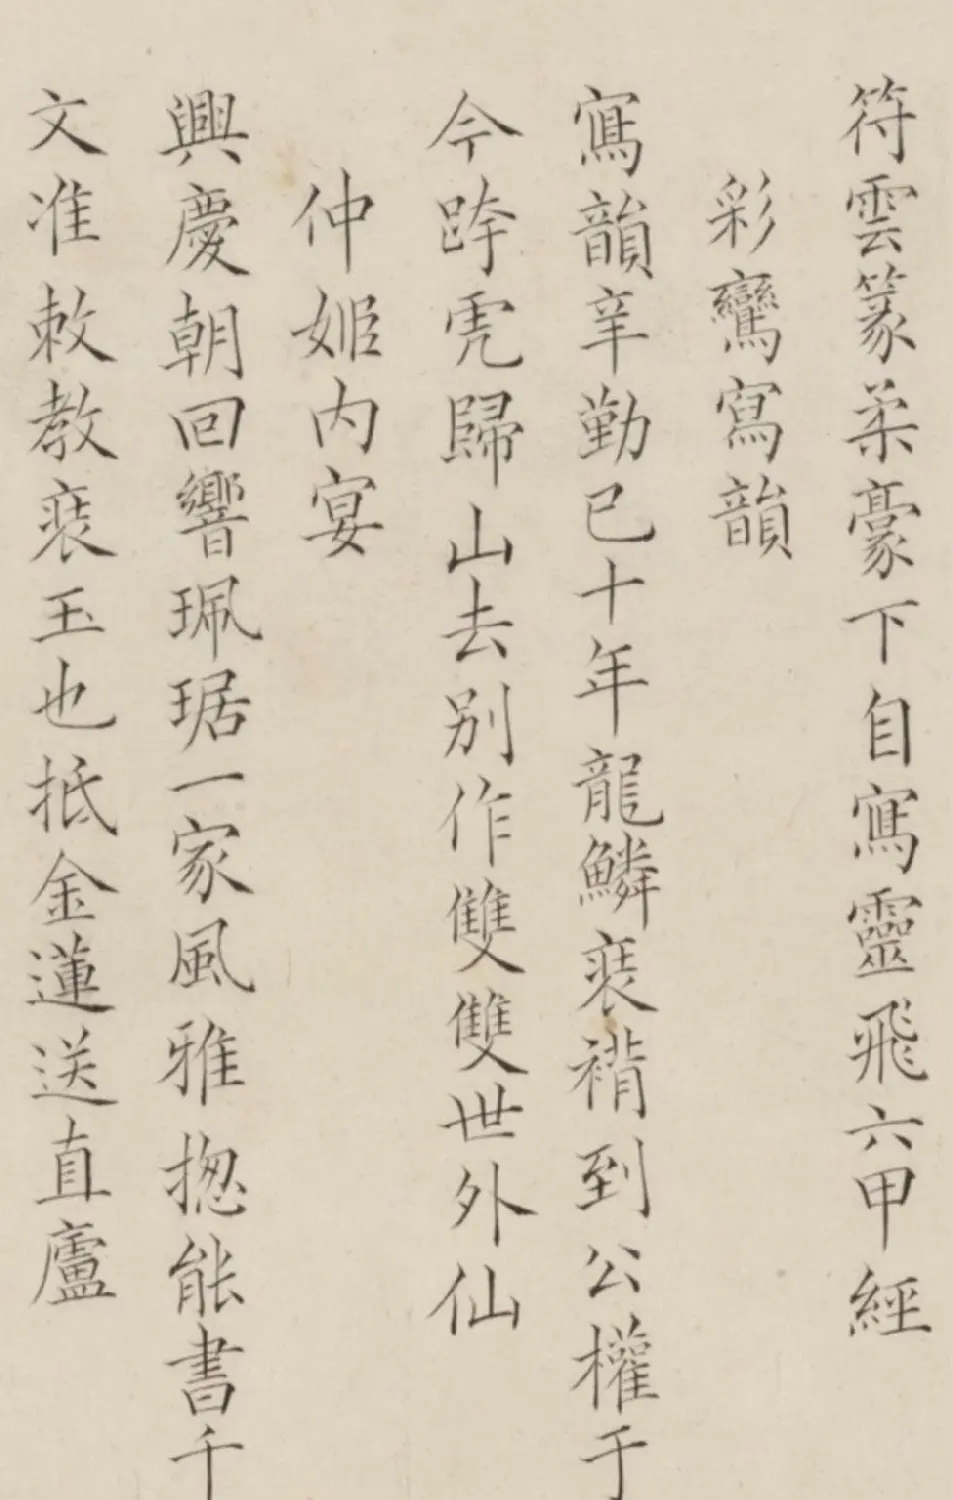 符雲篆柔豪下自寫靈飛六甲經
彩鸞寫韻
寫韻辛勤已十年龍鱗裝褙到公權于
今跨虎歸山去別作雙雙世外仙
仲姬内宴
興慶朝回響珮琚一家風雅揔能書千
文准敕教裝玉也抵金蓮送直廬